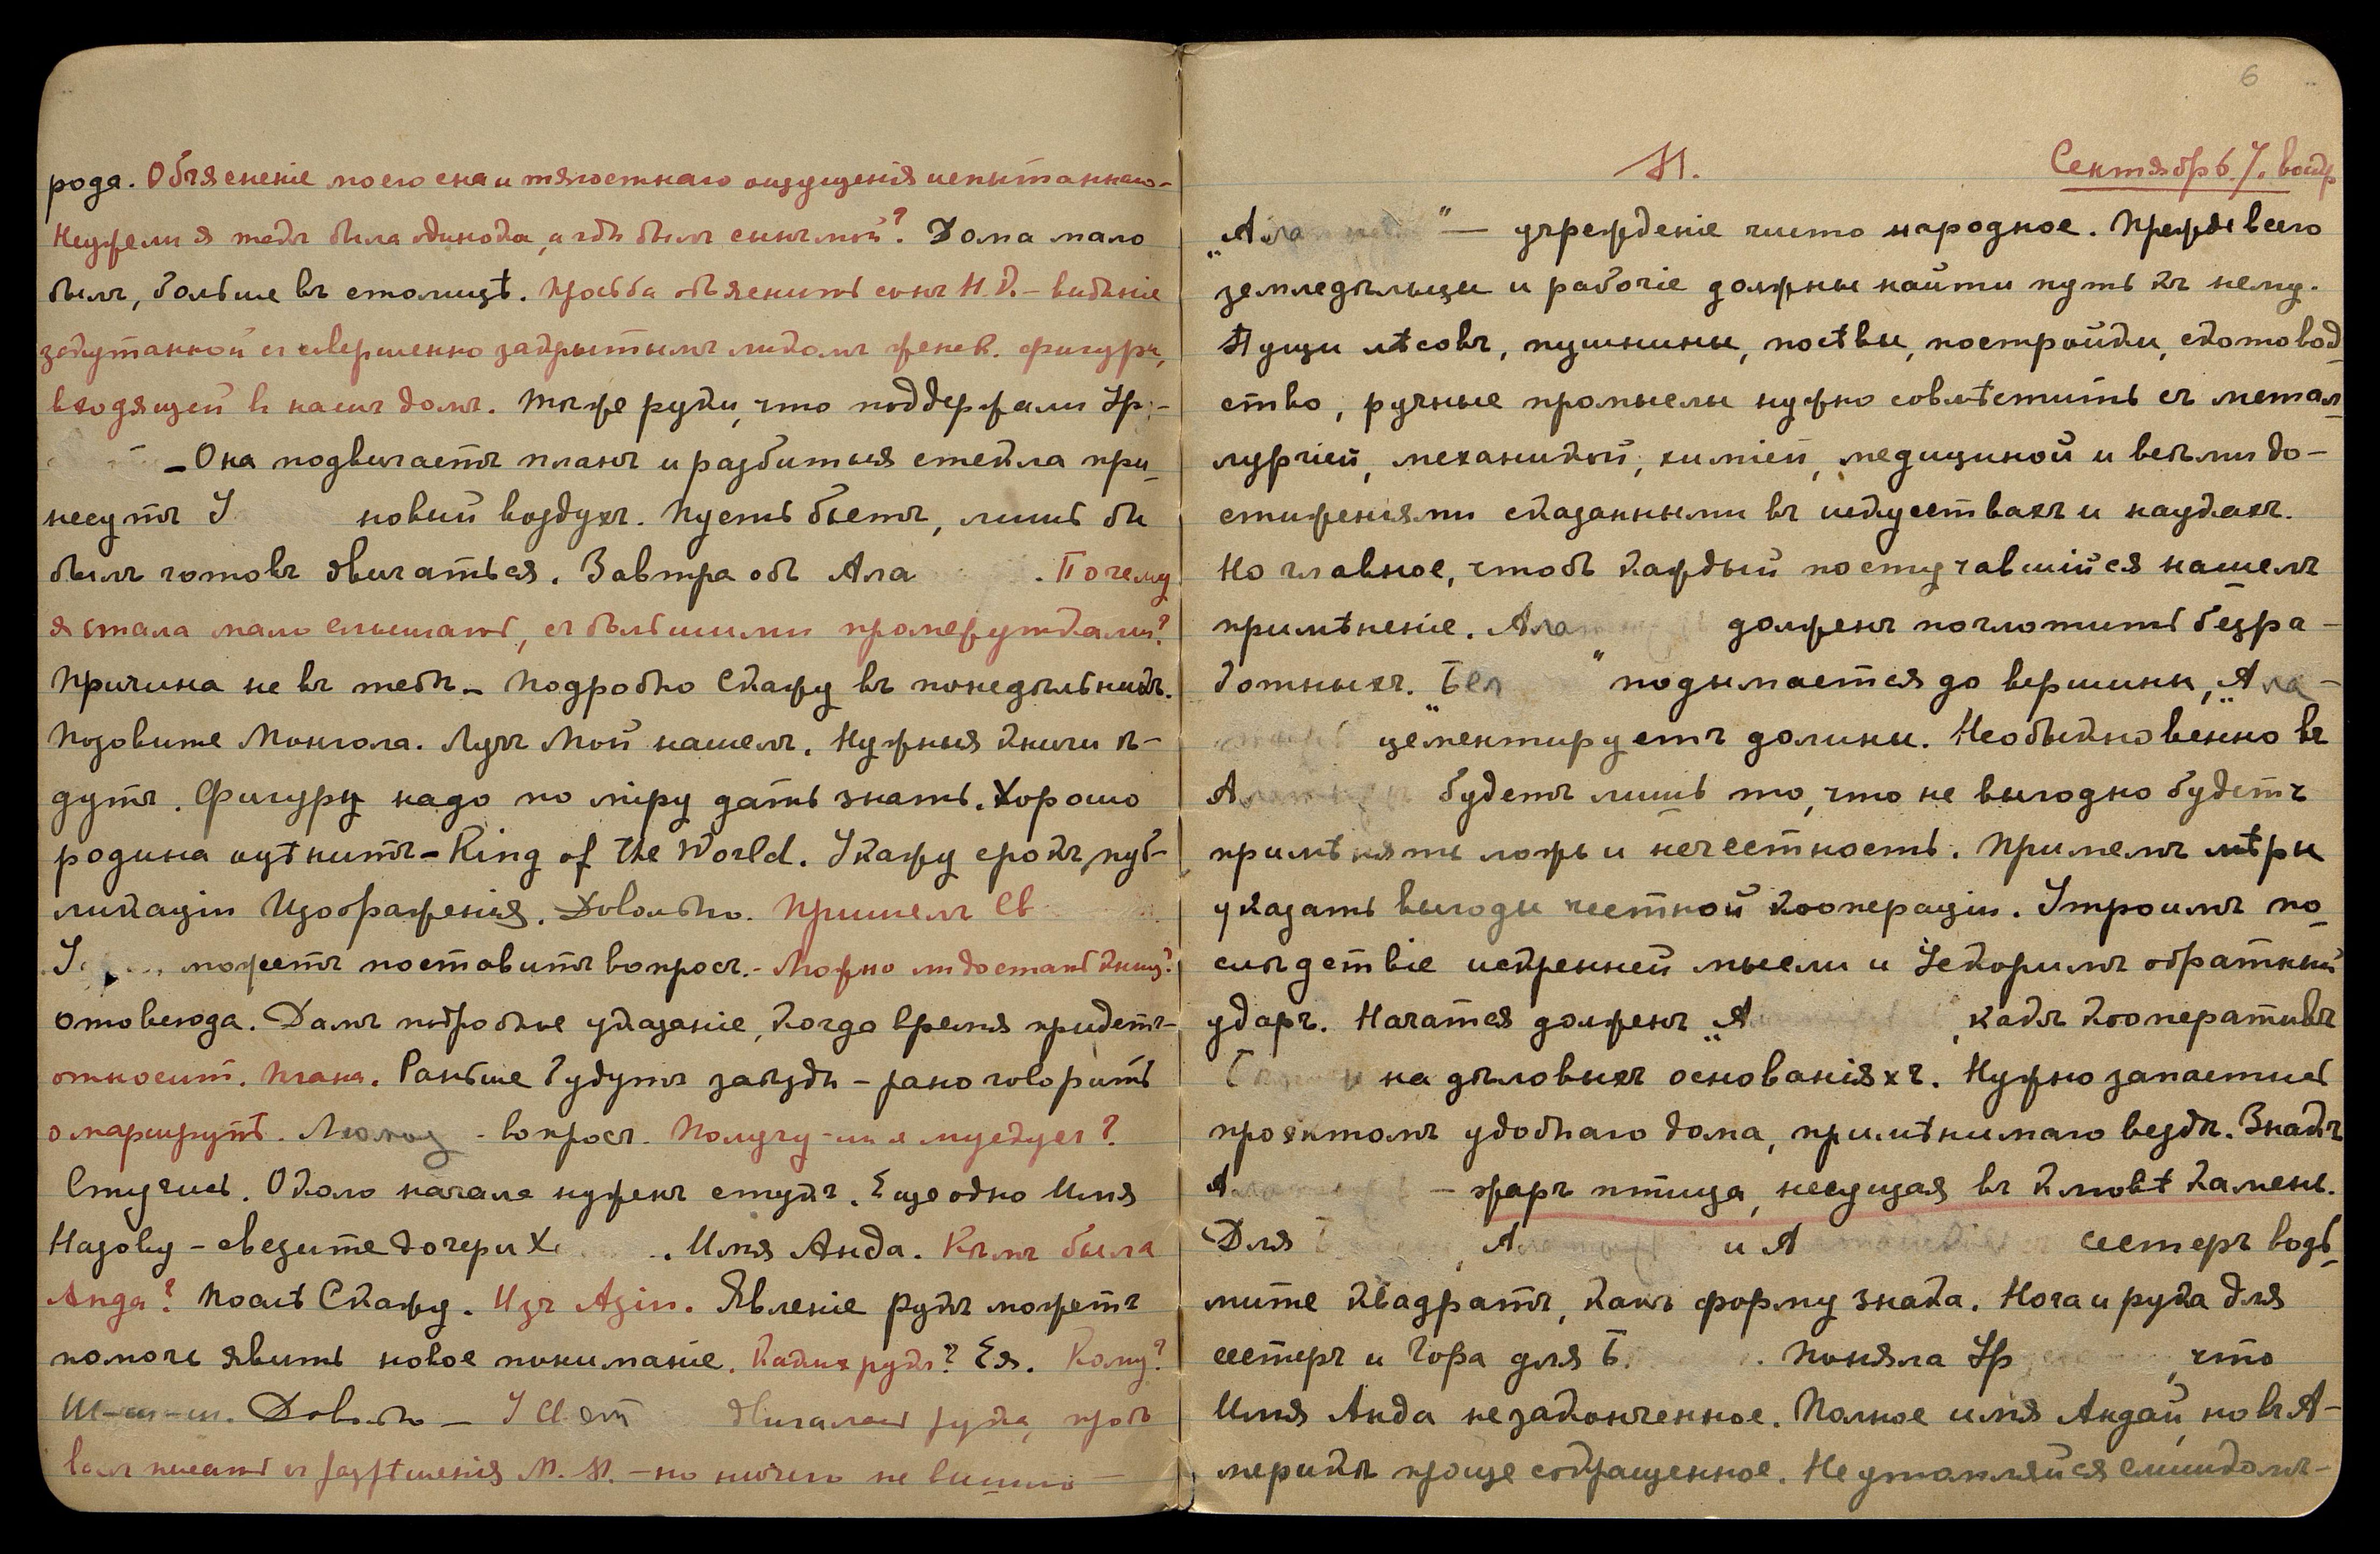 рода. Объясненіе моего сна и тягостнаго ощущенія испытаннаго-
Неужели я тамъ была одинока, а гдѣ былъ сынъ мой? Дома мало
былъ, больше въ столицѣ. Просьба объяснить сонъ Н.К. - видѣніе
закутанной съ совершенно закрытымъ ликомъ женск. фигуры,
входящей въ нашъ домъ. Тѣ же руки, что поддержали Ур. -
- Она подвигаетъ планъ и разбитыя стекла при-
несутъ У новый воздухъ. Пусть бьетъ, лишь бы
былъ готовъ двигаться. Завтра объ Ала . Почему
я стала мало слышать, съ большими промежутками?
Причина не въ тебѣ - Подробно Скажу въ понедѣльникъ.
Позовите Монгола. Лучъ Мой нашелъ. Нужныя книги ѣ-
дутъ. Фигуру надо по міру дать знать. Хорошо
родина оцѣнитъ - King of the World. Укажу срокъ пуб-
ликаціи Изображенія. Довольно. Пришелъ Св
У. можетъ поставить вопросъ. - Можно ли достать книгу?
Отовсюда. Дамъ подробное указаніе, когда время придетъ -
относит. плана. Раньше будутъ заѣзды - рано говорить
о маршрутѣ. - вопросъ. Получу-ли я мускусъ?
Стучись. Около начала нуженъ стукъ. Еще одно Имя
Назову - сведите дочери Х . Имя Анда. Кѣмъ была
Анда? Послѣ Скажу. Изъ Азіи. Явленіе рукъ можетъ
помочь явить новое пониманіе. Какихъ рукъ? Ея. Кому?
Ш-ш-ш. Довольно - У двигалась рука, проб
вали писать съ разрѣшенія М. М. - но ничего не вышло -
6
М. Сентябрь 7. воскр
„Ала " - учрежденіе чисто народное. Прежде всего
земледѣльцы и рабочіе должны найти путь къ нему.
Пущи лѣсовъ, пушнины, посѣвы, постройки, скотовод-
ство, ручные промыслы нужно совмѣстить съ метал-
лургіей, механикой, химіей, медициной и всѣми до-
стиженіями сказанными въ искусствахъ и наукахъ.
Но главное, чтобъ каждый постучавшійся нашелъ
примѣненіе. Ала долженъ поглотить безра-
ботныхъ. „Бел " подымается до вершины, „Ала-
цементируетъ долины. Необыкновенно въ
А будетъ лишь то, что не выгодно будетъ
примѣнять ложь и нечестность. Примемъ мѣры
указать выгоды честной коопераціи. Утроимъ по-
слѣдствіе искренней мысли и Ускоримъ обратный
ударъ. Начатся долженъ „А , какъ кооперативъ
на дѣловыхъ основаніяхъ. Нужно запастись
проэктомъ удобнаго дома, примѣнимаго вездѣ. Знакъ
А - жаръ птица, несущая въ клювѣ камень.
Для , А и А сестеръ возь-
мите квадратъ, какъ форму знака. Нога и рука для
сестеръ и Гора для Б. . Поняла Ур , что
Имя Анда незаконченное. Полное имя Андай, но въ А-
мерикѣ проще сокращенное. Не утомляйся слишкомъ -